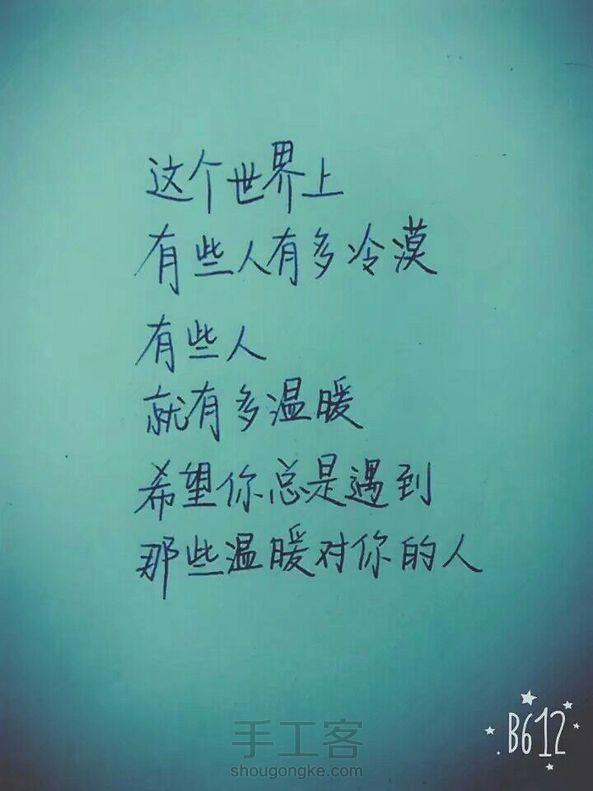 这个世界上
有些人有多冷漠
有些人
就有多温暖
希望你总是遇到
那些温暖对你的人
手工客
shougongke.com
B612